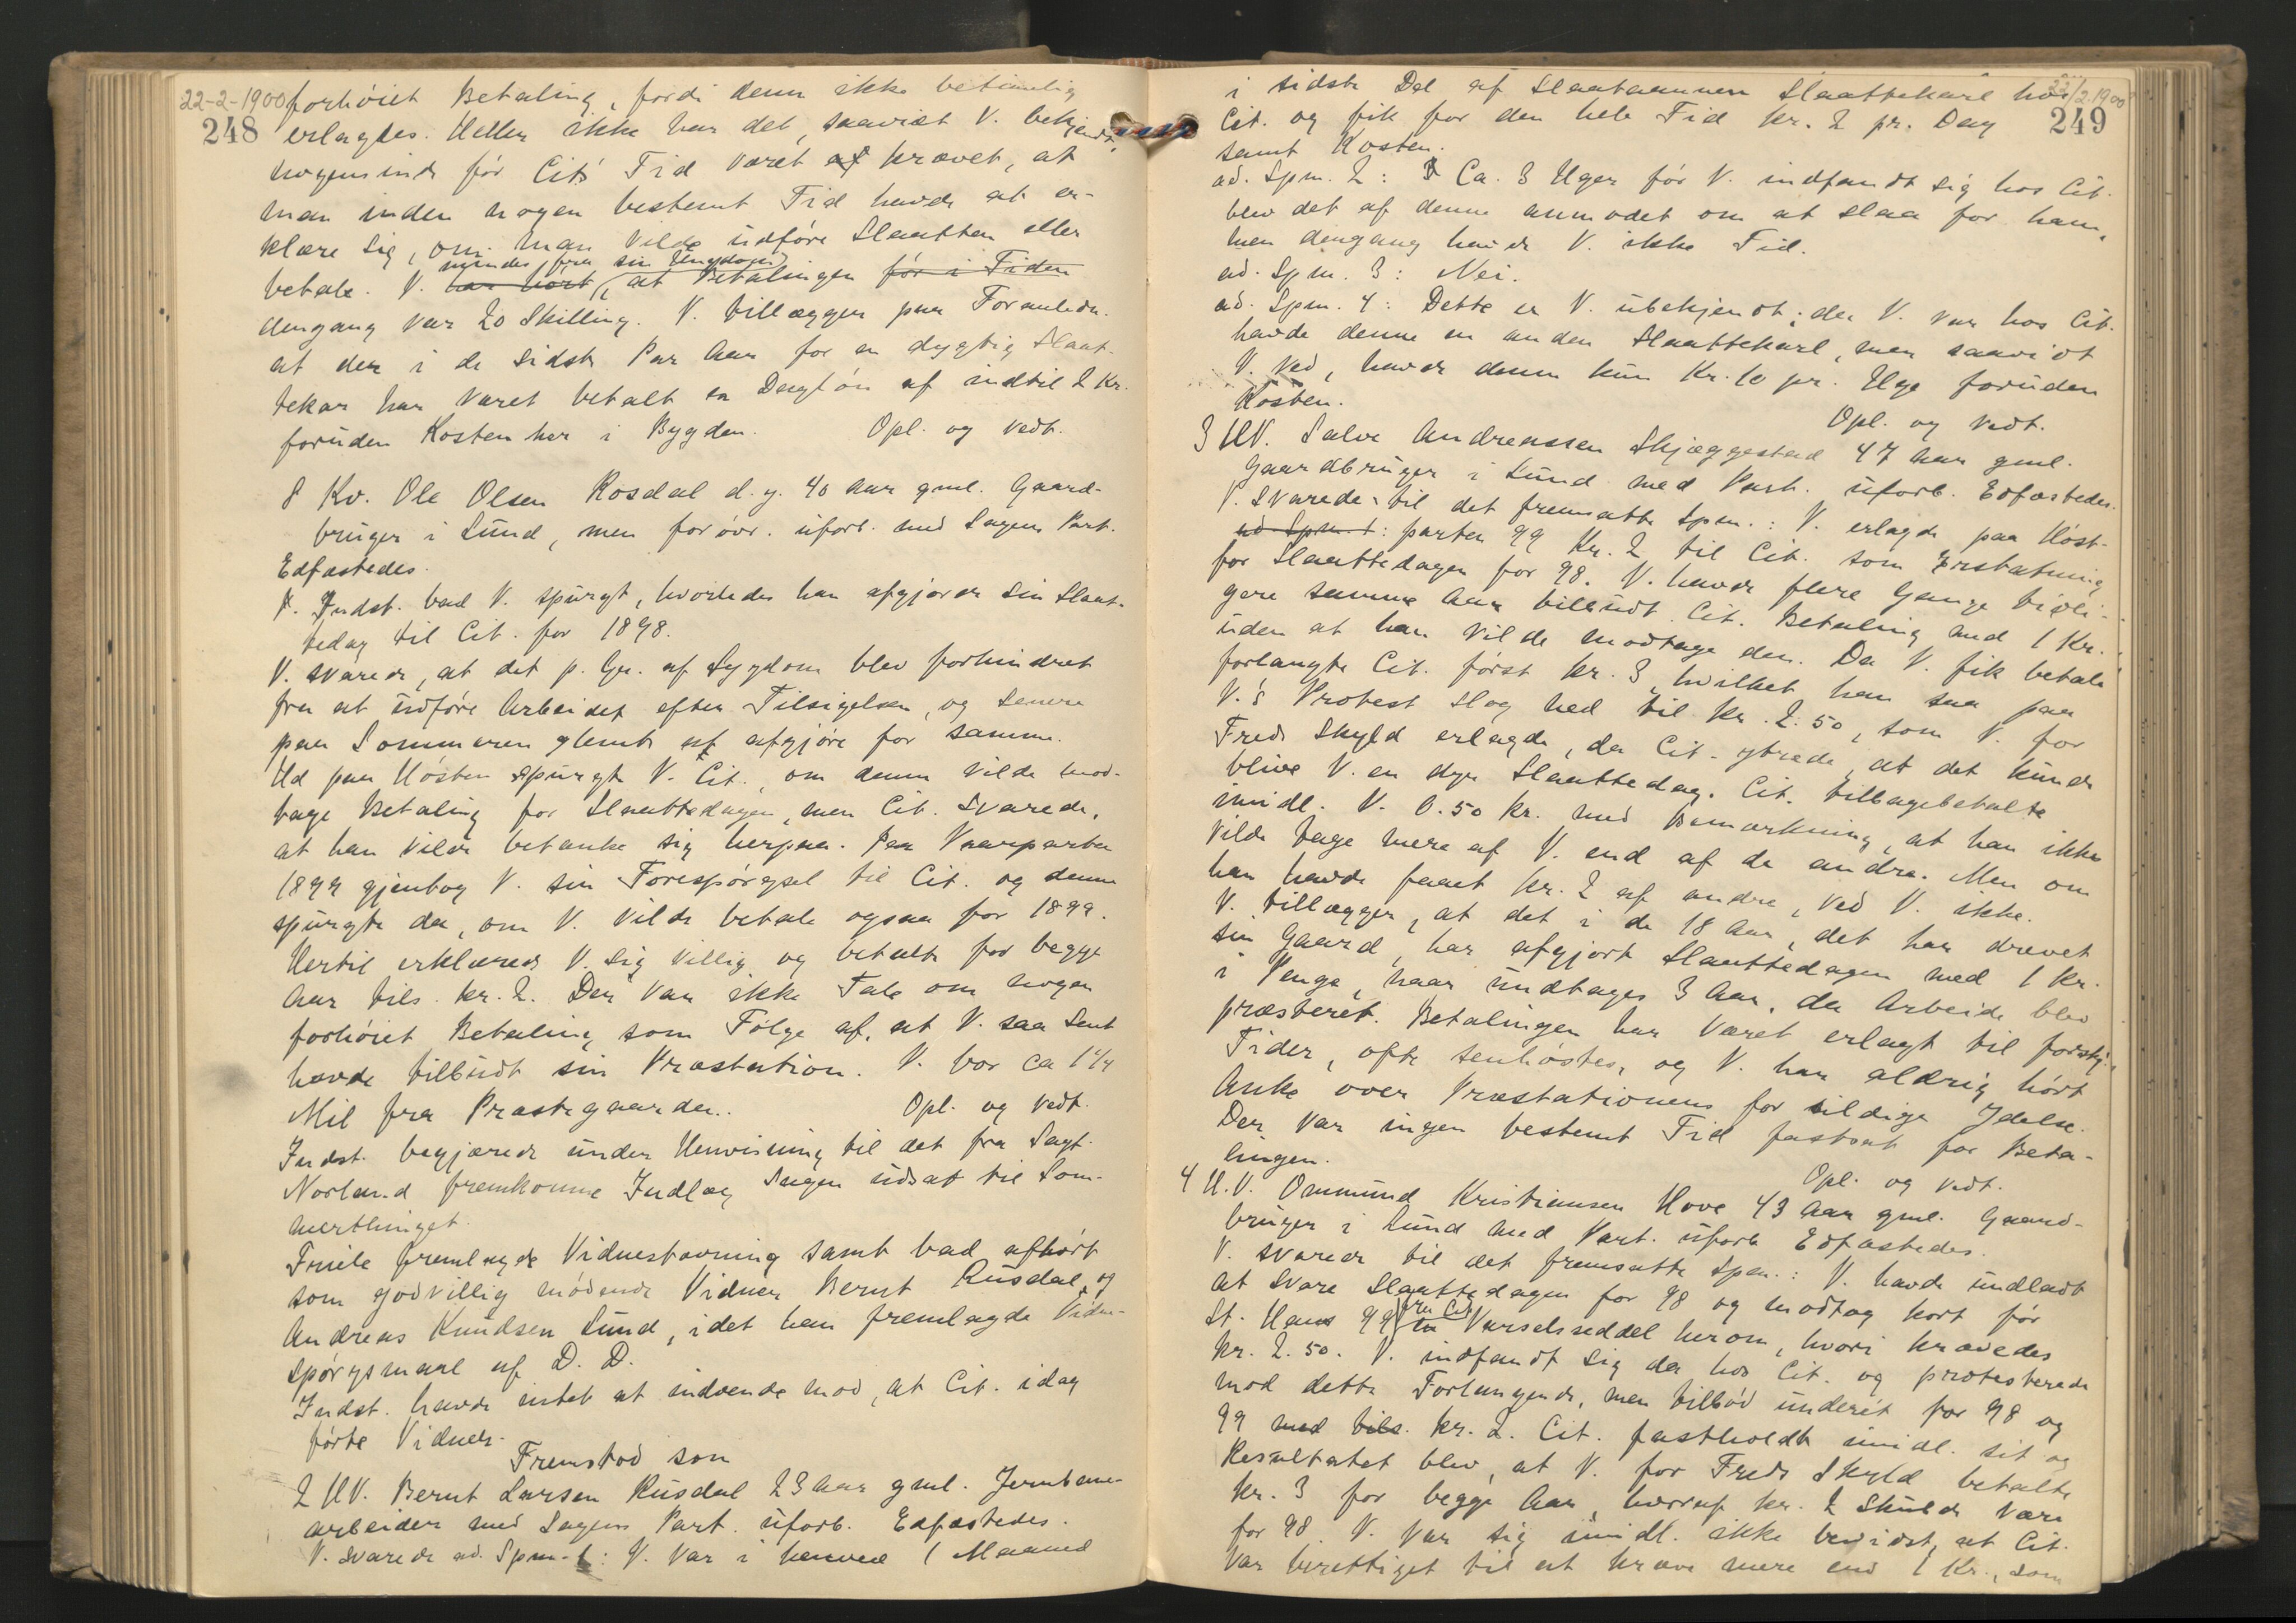 22-2-1900 forhöiet Betaling, fordi denne ikke betimelig
248 erlagdes. Heller ikke har det, saavist V. bekjendt,
nogensinde før Cit's Tid været af krævet, at
man inden nogen bestemt Tid havde at er-
klære sig, om man vilde udføre Slaatten eller
mindes fra sin Ungdom
betale. V. har hørt at Betalingen før i Tiden
dengang var 20 Skilling. V. tillægger paa Foranledn.
at der i de sidste Par Aar for en dygtig Slaat-
tekar har været betalt en Dagløn af indtil 2 Kr.
foruden Kosten her i Bygden. Opl. og vedt.
8 Kv. Ole Olsen Rosdal d. y. 40 Aar gml. Gaard-
bruger i Lund, men forøvr. uforb. med Sagens Part.
Edfæstedes.
Indst. bad V. spurgt, hvorledes han afgjorde sin Slaat-
tedag til Cit. for 1898.
V. svarede, at det p. Gr. af Sygdom blev forhindret
fra at udføre Arbeidet efter Tilsigelsen, og senere
paa Sommeren glemte at afgjøre for samme.
Ud paa Høsten spurgte V. Cit., om denne vilde mod-
tage Betaling for Slaattedagen, men Cit. svarede,
at han vilde betænke sig herpaa. Paa Vaarparten
1899 gjentog V. sin Forespørgsel til Cit. og denne
spurgte da, om V. vilde betale ogsaa for 1899.
Hertil erklærede V. sig villig og betalte for begge
Aar tils. kr. 2. Der var ikke Tale om nogen
forhøiet Betaling som Følge af, at V. saa sent
havde tilbudt sin Præstation. V. bor ca 1 1/4
Mil fra Præstegaarden. Opl. og vedt.
Indst. begjærede under Henvisning til det fra Sagf.
Norland fremkomne Indlæg Sagen udsat til Som-
merthinget.
Friele fremlagde Vidnestævning samt bad afhørt
som godvillig mødende Vidner Bernt Rusdal og
Andreas Knudsen Lund, idet han fremlagde Vidne-
spørgsmaal af D. D.
Indst. havde intet at indvende mod, at Cit. idag
førte Vidner.
Fremstod som
2 UV. Bernt Larsen Rusdal 23 Aar gml. Jernbane-
arbeider med Sagens Part. uforb. Edfæstedes.
V. svarede ad. Spm. 1: V. var i henved 1 Maaned
22/2.1900
249
i sidste Del af Slaataannen Slaattekarl hos
Cit. og fik for den hele Tid kr. 2 pr. Dag
samt Kosten.
ad. Spm. 2: Ca. 3 Uger før V. indfandt sig hos Cit.
blev det af denne anmodet om at slaa for ham,
men dengang havde V. ikke Tid.
ad. Spm. 3: Nei.
ad. Spm. 4: Dette er V. ubekjendt; da V. var hos Cit.
havde denne en anden Slaattekarl, men saavidt
V. ved, havde denne kun Kr. 10 pr. Uge foruden
Kosten.
Opl. og vedt.
3 UV. Salve Andreassen Skjæggestad 47 Aar gml.
Gaardbruger i Lund med Part. uforb. Edfæstedes.
V. svarede til det fremsatte Spm.: V. erlagde paa Høst-
ad Spm. 1: parten 99 Kr. 2 til Cit. som Erstatning
for Slaattedagen for 98. V. havde flere Gange tidli-
gere samme Aar tilbudt Cit. Betaling med 1 Kr.
uden at han vilde modtage den. Da V. fik betale
forlangte Cit. først kr. 3, hvilket han saa paa
V.'s Protest slog ned til kr. 2.50, som V. for
Freds Skyld erlagde, da Cit. ytrede, at det kunde
blive V. en dyr Slaattedag. Cit. tilbagebetalte
imidl. V. 0.50 kr. med Bemærkning, at han ikke
vilde tage mere af V. end af de andre. Men om
han havde faaet kr. 2 af andre, ved V. ikke.
V. tillægger, at det i de 18 Aar, det har drevet
sin Gaard, har afgjort Slaattedagen med 1 kr.
i Penge, naar undtages 3 Aar, da Arbeide blev
præsteret. Betalingen har været erlagt til forskj.
Tider, ofte senhøstes, og V. har aldrig hørt
Anke over Præstationens for sildige Ydelse.
Der var ingen bestemt Tid fastsat for Beta-
lingen.
Opl. og vedt.
4 U.V. Ommund Kristiansen Hove 43 Aar gml. Gaard-
bruger i Lund med Part. uforb. Edfæstedes.
V. svarede til det fremsatte Spm.: V. havde undladt
at svare Slaattedagen for 98 og modtog kort før
fra Cit.
St. Hans 99 en Varselsseddel herom, hvori krævedes
kr. 2.50. V. indfandt sig da hos Cit. og protesterede
mod dette Forlangende, men tilbød underet for 98 og
99 med tils. kr. 2. Cit. fastholdt imidl. sit og
Resultatet blev, at V. for Freds Skyld betalte
kr. 3 for begge Aar, hvoraf kr. 2 skulde være
for 98. V. var sig imidl. ikke bevidst, at Cit.
var berettiget til at kræve mere end 1 Kr., som